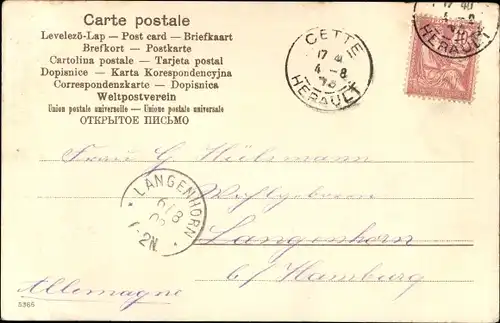 Carte postale
Levelező-Lap — Post card — Briefkaart
Brefkort — Postkarte
Cartolina postale — Tarjeta postal
Dopisnice — Karta Korespondencyjna
Correspondenzkarte — Dopisnica
Weltpostverein
Union postale universelle — Unione postale universale
ОТКРЫТОЕ ПИСЬМО
CETTE
17 40
4 - 8
HERAULT
17 40
4 - 8
HERAULT
10
Frau G Hülsmann
Wohlgeboren
Langenhorn
b/ Hamburg
LANGENHORN
6/8
-2N.
Allemagne
5366